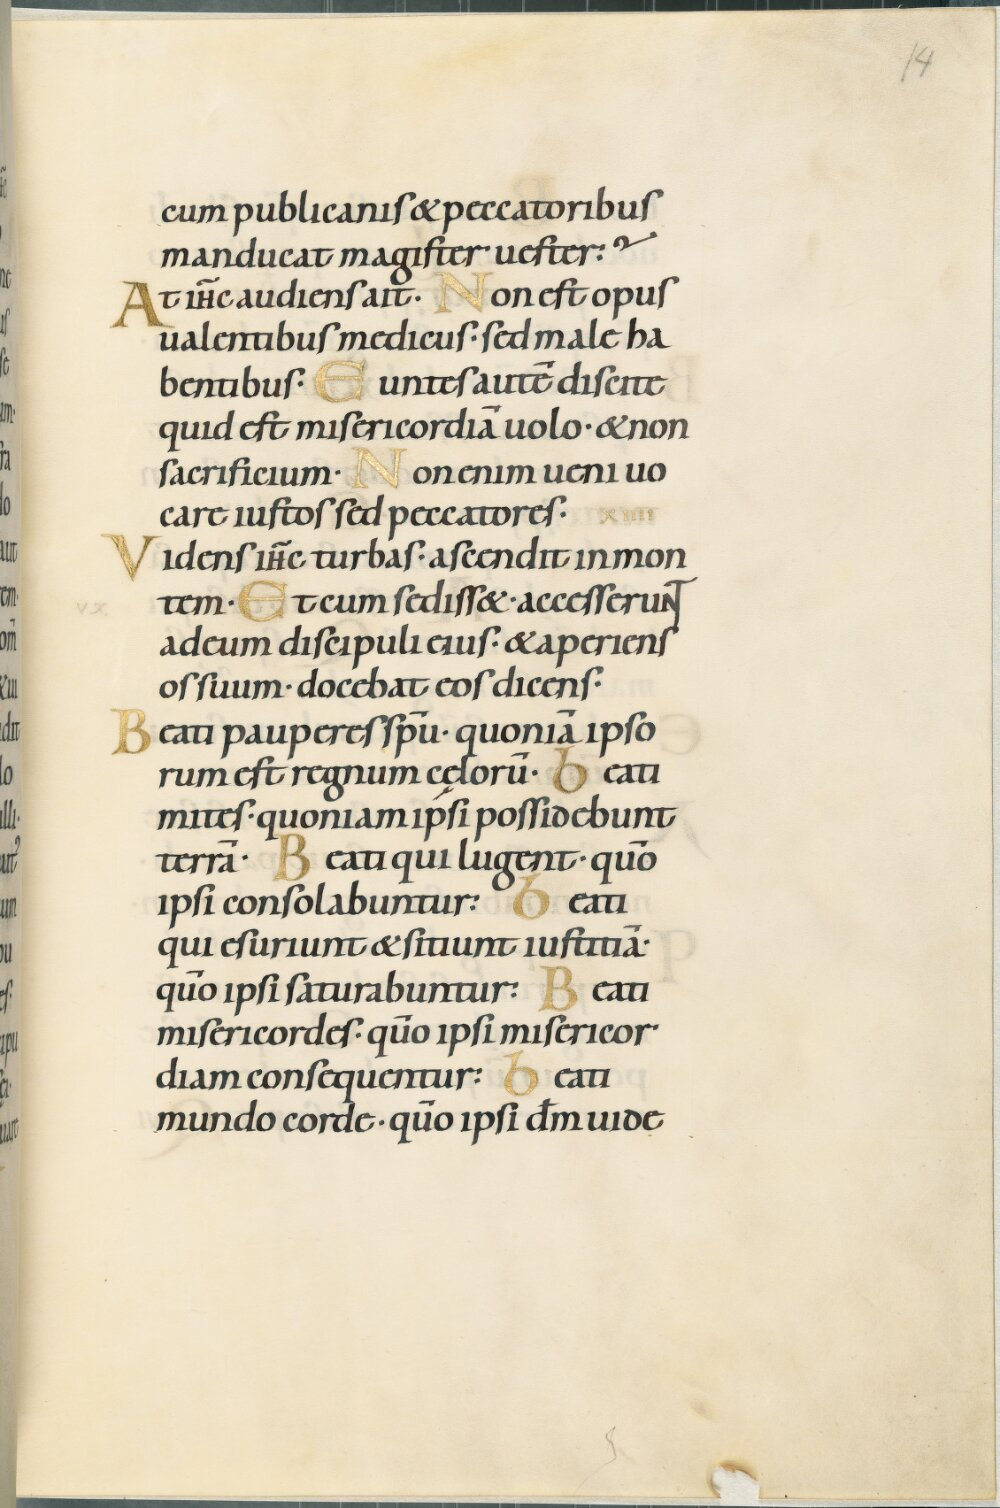 14
cum publicanis & peccatoribus
manducat magister uester:
At ihc̄ audiens ait· Non est opus
ualentibus medicus· sed male ha
bentibus· Euntes autē discite
quid est misericordiā uolo· & non
sacrificium· Non enim ueni uo
care iustos sed peccatores·
Videns ihc̄ turbas· ascendit in mon
tem· Et cum sediss&· accesserunt
ad eum discipuli eius· & aperiens
os suum· docebat eos dicens·
Beati pauperes spū· quoniā ipso
rum est regnum cęlorū· beati
mites· quoniam ipsi possidebunt
terrā· Beati qui lugent· qūo
ipsi consolabuntur: beati
qui esuriunt & sitiunt iustitiā·
qūo ipsi saturabuntur: Beati
misericordes· qūo ipsi misericor
diam consequentur: beati
mundo corde· qūo ipsi dm̄ uide